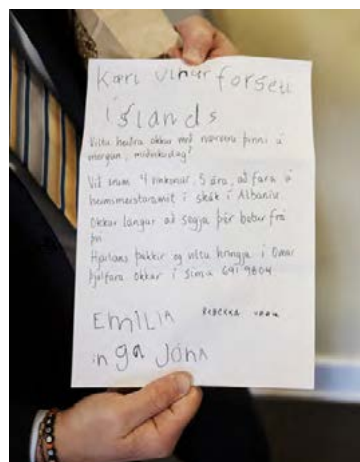 Kæri vinur forseti
íslands
Viltu heiðra okkur með nærveru þinni á
morgun, miðvikudag?
Við erum 4 vinkonur, 5 ára, að fara á
heimsmeistaramót í skák í Albaníu.
Okkur langar að segja þér betur frá
því
Hjartans þakkir og viltu hringja í Omar
þjálfara okkar í síma 691 9804
EMILIA REBEKKA
inga Jóna